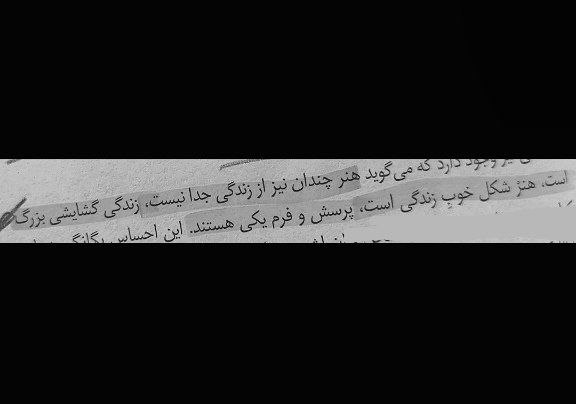 نیز وجود دارد که می‌گوید هنر چندان نیز از زندگی جدا نیست، زندگی گشایشی بزرگ
است، هنر شکل خوبِ زندگی است، پرسش و فرم یکی هستند. این احساس یگانگی